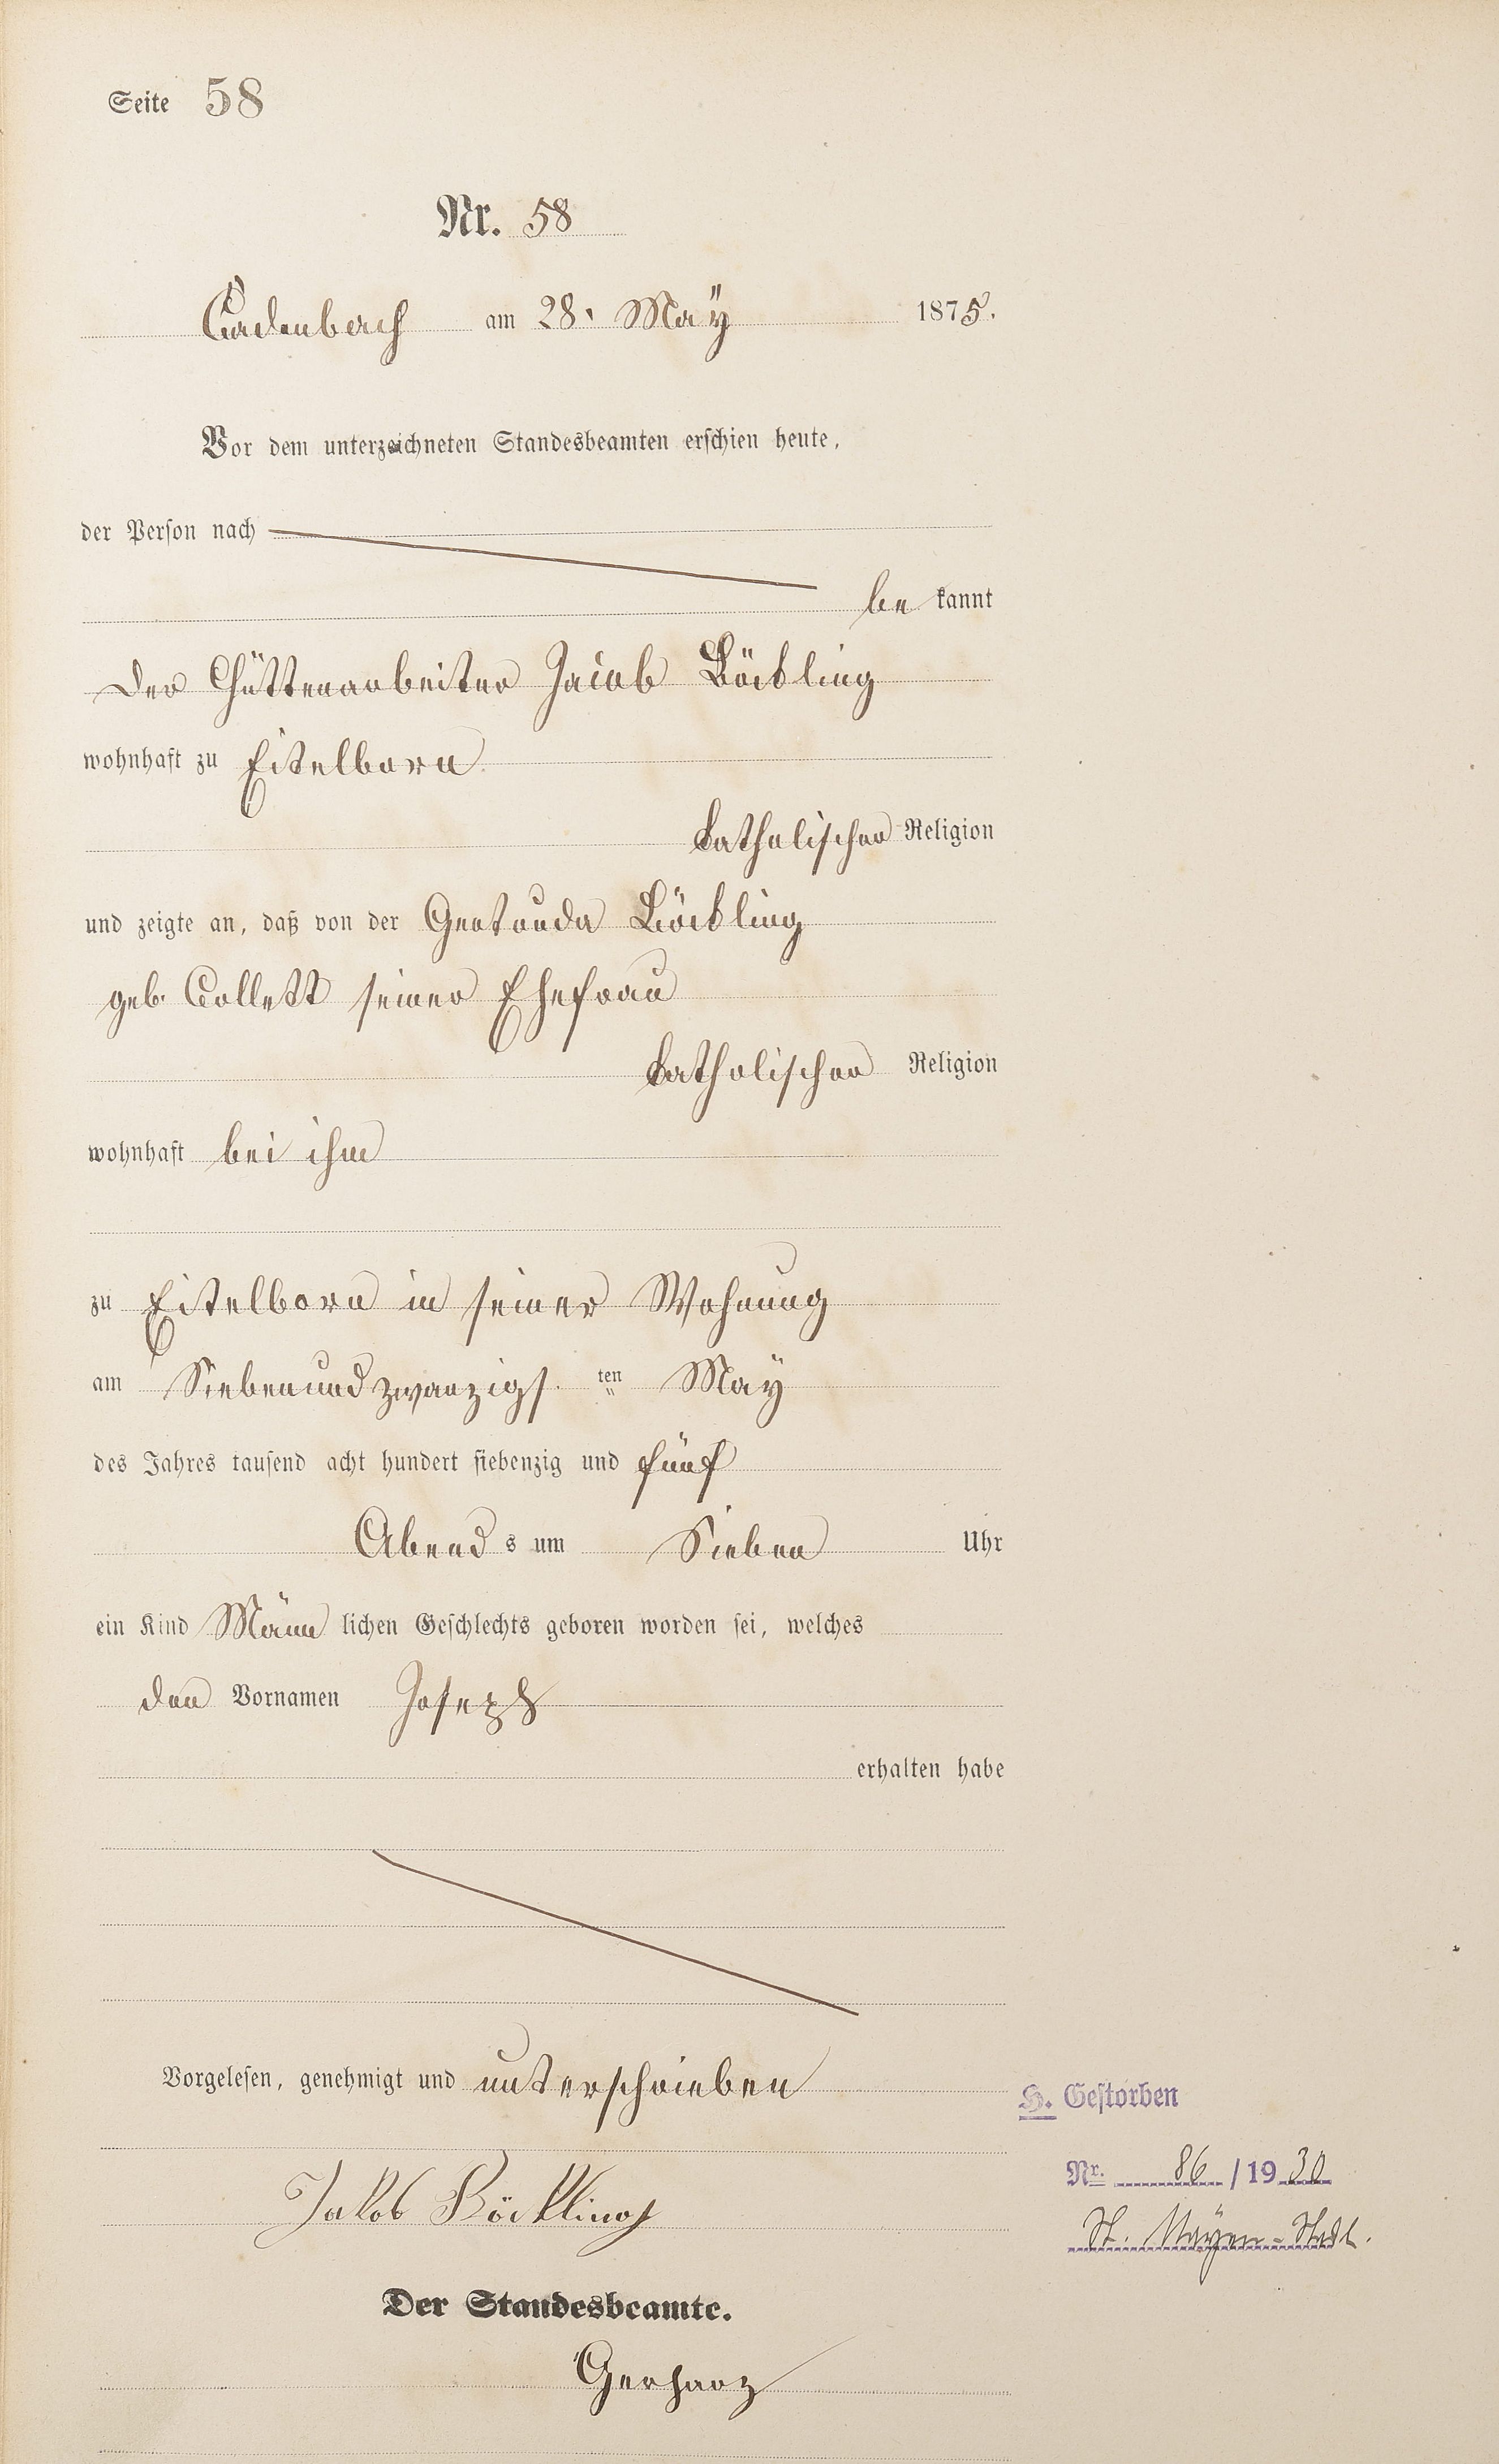 Seite 58
Nr. 58
Cadenbach am 28. May 1875.
Vor dem unterzeichneten Standesbeamten erschien heute,
der Person nach
be kannt
der Hüttenarbeiter Jacob Böckling
wohnhaft zu Eitelborn
katholischer Religion
und zeigte an, daß von der Gertruda Böckling
geb. Collett seiner Ehefrau
katholischer Religion
wohnhaft bei ihm
zu Eitelborn in seiner Wohnung
am Siebenundzwanzigs. ten May
des Jahres tausend acht hundert siebenzig und fünf
Abend s um Sieben Uhr
ein Kind Männ lichen Geschlechts geboren worden sei, welches
den Vornamen Joseph
erhalten habe
Vorgelesen, genehmigt und unterschrieben
Jakob Böckling
Der Standesbeamte.
Gerharz
H. Gestorben
Nr. 86 / 19 30
St. Mayen-Stadt.